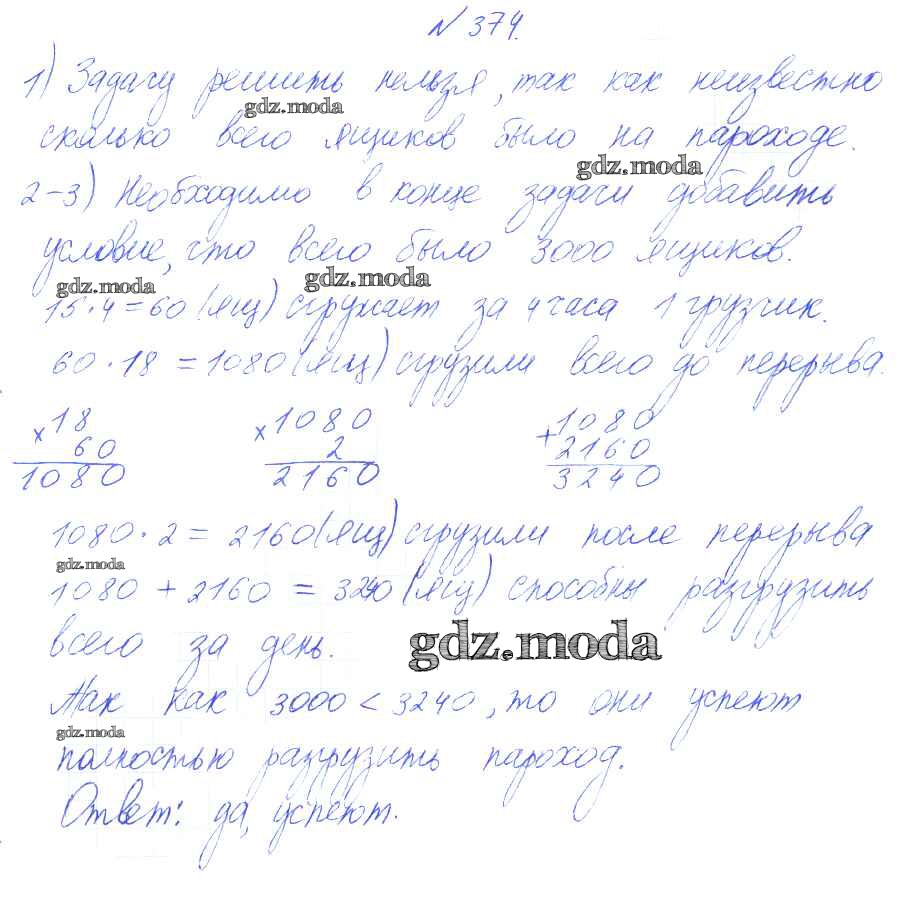 № 374.
1) Задачу решить нельзя, так как неизвестно
gdz.moda
сколько всего ящиков было на пароходе.
gdz.moda
2-3) Необходимо в конце задачи добавить
условие, что всего было 3000 ящиков.
gdz.moda gdz.moda
15·4=60 (ящ) сгружает за 4 часа 1 грузчик.
60·18=1080 (ящ) сгрузили всего до перерыва.
18 1080 1080
× 60 × 2 + 2160
1080 2160 3240
1080·2=2160 (ящ) сгрузили после перерыва
gdz.moda
1080+2160=3240 (ящ) способны разгрузить
всего за день.
gdz.moda
Так как 3000<3240, то они успеют
gdz.moda
полностью разгрузить пароход.
Ответ: да, успеют.